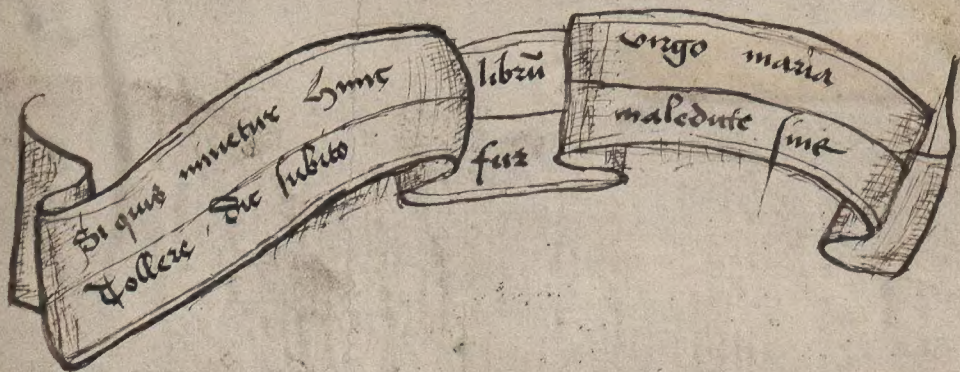 Si quis nitetur Hunc librū virgo maria
Tollere, dic subito fur maledicte sine